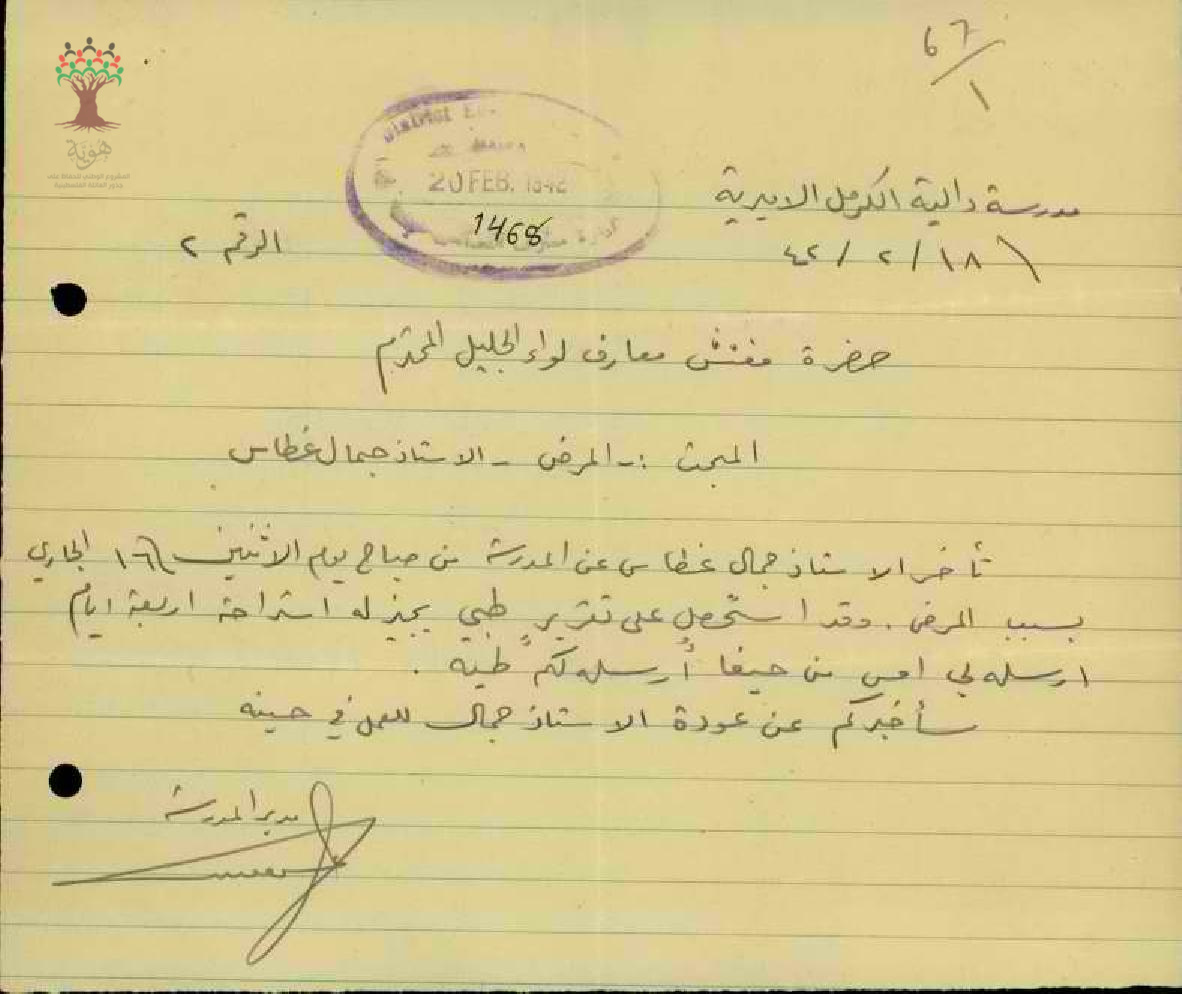 ٦٧/١
هوية
المشروع الوطني للحفاظ على
جذور العائلة الفلسطينية
District
20 FEB. 1942
1468
مدرسة دالية الكرمل الاميرية
١٨/٢/٤٢
الرقم ٢
حضرة مفتش معارف لواء الجليل المحترم
المبحث :- المرض - الاستاذ جمال غطاس
تأخر الاستاذ جمال غطاس عن المدرسة من صباح يوم الاثنين ١٦ الجاري
بسبب المرض . وقد استحصل على تقرير طبي يجيز له استراحة اربعة ايام
ارسله لي امس من حيفا أرسله لكم طيه .
سأخبركم عن عودة الاستاذ جمال للعمل في حينه
مدير المدرسة